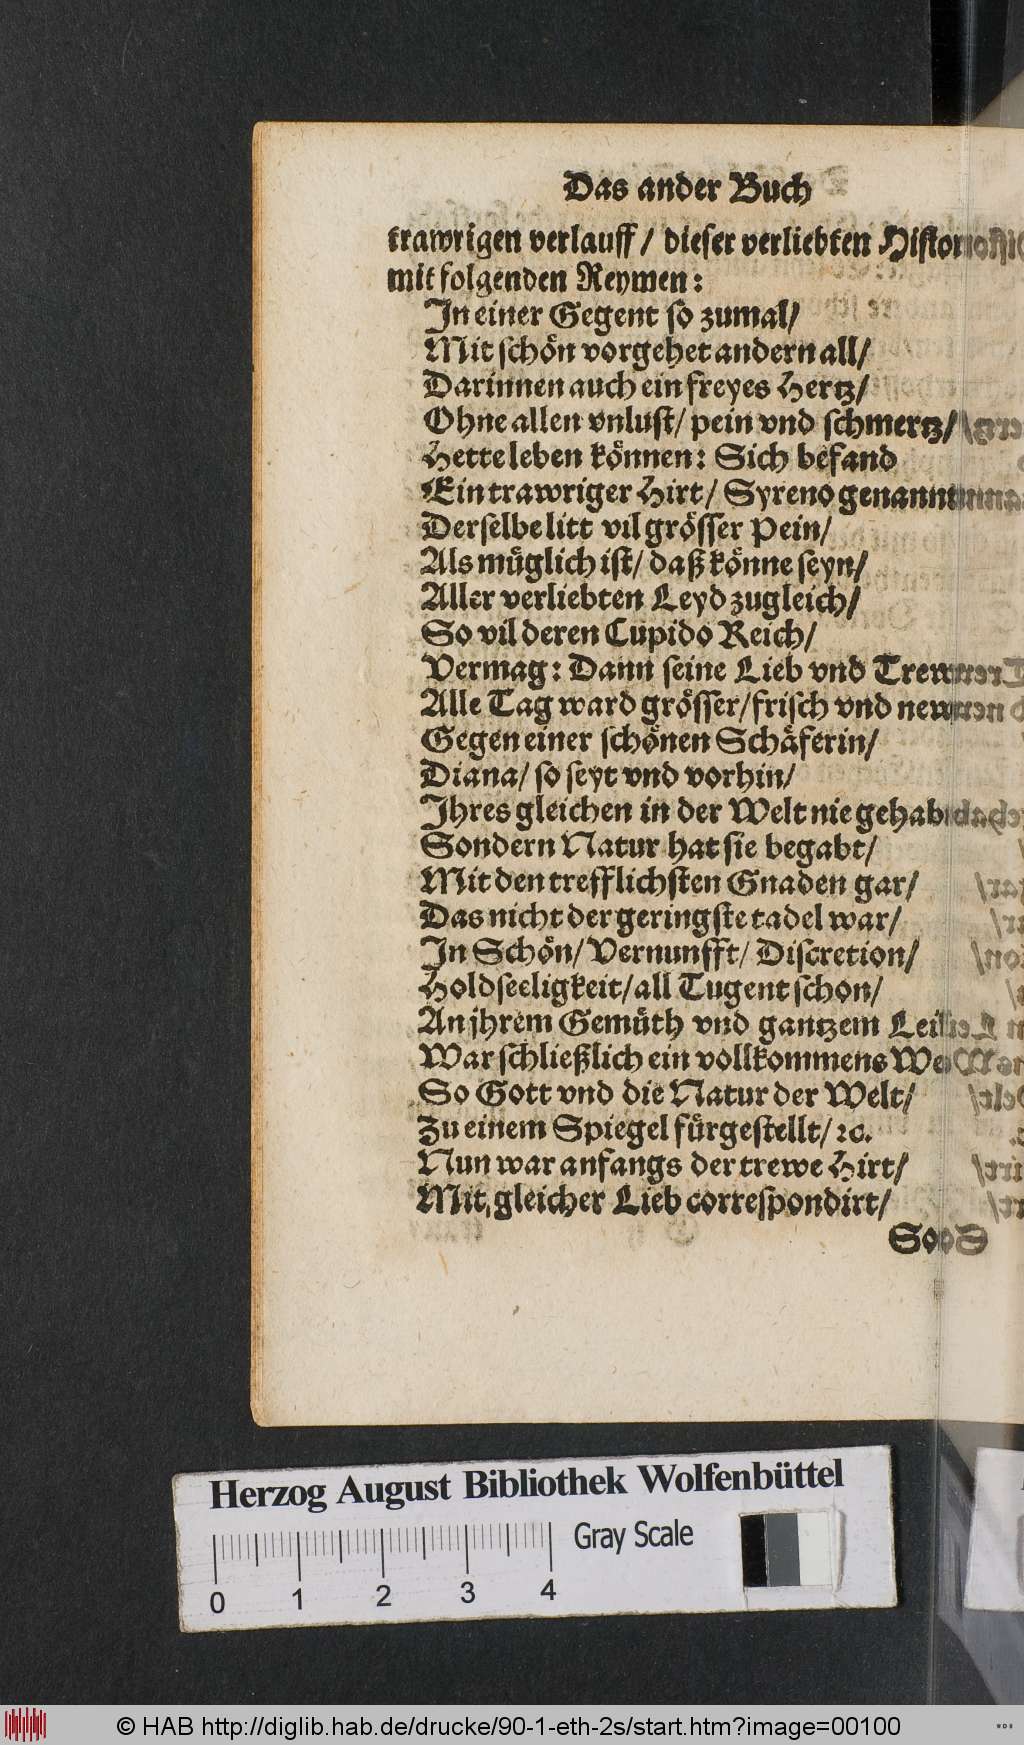 Das ander Buch
trawrigen verlauff / dieser verliebten
mit folgenden Reymen:
In einer Gegent so zumal/
Mit schön vorgehet andern all/
Darinnen auch ein freyes Hertz/
Ohne allen vnlust/ pein vnd schmertz/
Hette leben können: Sich befand
Ein trawriger Hirt/ Syreno genannt
Derselbe litt vil grösser Pein/
Als müglich ist/ daß könne seyn/
Aller verliebten Leyd zugleich/
So vil deren Cupido Reich/
Vermag: Dann seine Lieb vnd Trew
Alle Tag ward grösser/ frisch vnd new
Gegen einer schönen Schäferin/
Diana/ so seyt vnd vorhin/
Ihres gleichen in der Welt nie gehabt
Sondern Natur hat sie begabt/
Mit den trefflichsten Gnaden gar/
Das nicht der geringste tadel war/
In Schön/ Vernunfft/ Discretion/
Holdseeligkeit/ all Tugent schon/
An jhrem Gemüth vnd gantzem Leib
War schließlich ein vollkommens
So Gott vnd die Natur der Welt/
Zu einem Spiegel fürgestellt/ ꝛc.
Nun war anfangs der trewe Hirt/
Mit gleicher Lieb correspondirt/
So
Herzog August Bibliothek Wolfenbüttel
Gray Scale
0 1 2 3 4
© HAB http://diglib.hab.de/drucke/90-1-eth-2s/start.htm?image=00100